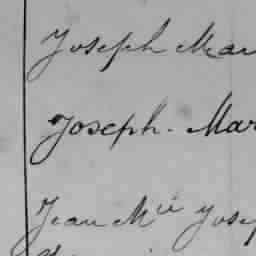 Joseph Mar
Joseph. Mar
Jean Mie Josep